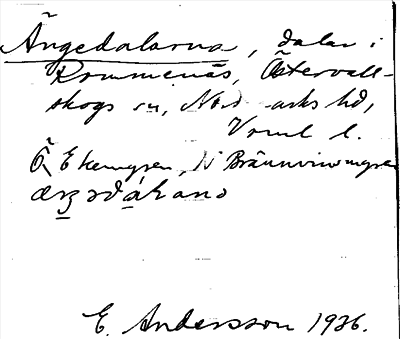 Ängedalarna, dalar i
Rommenäs, Östervall-
skogs sn, Nordmarks hd,
Vrml l.
Ö Ekemyren, N Brännvinsmyren
E. Andersson 1936.